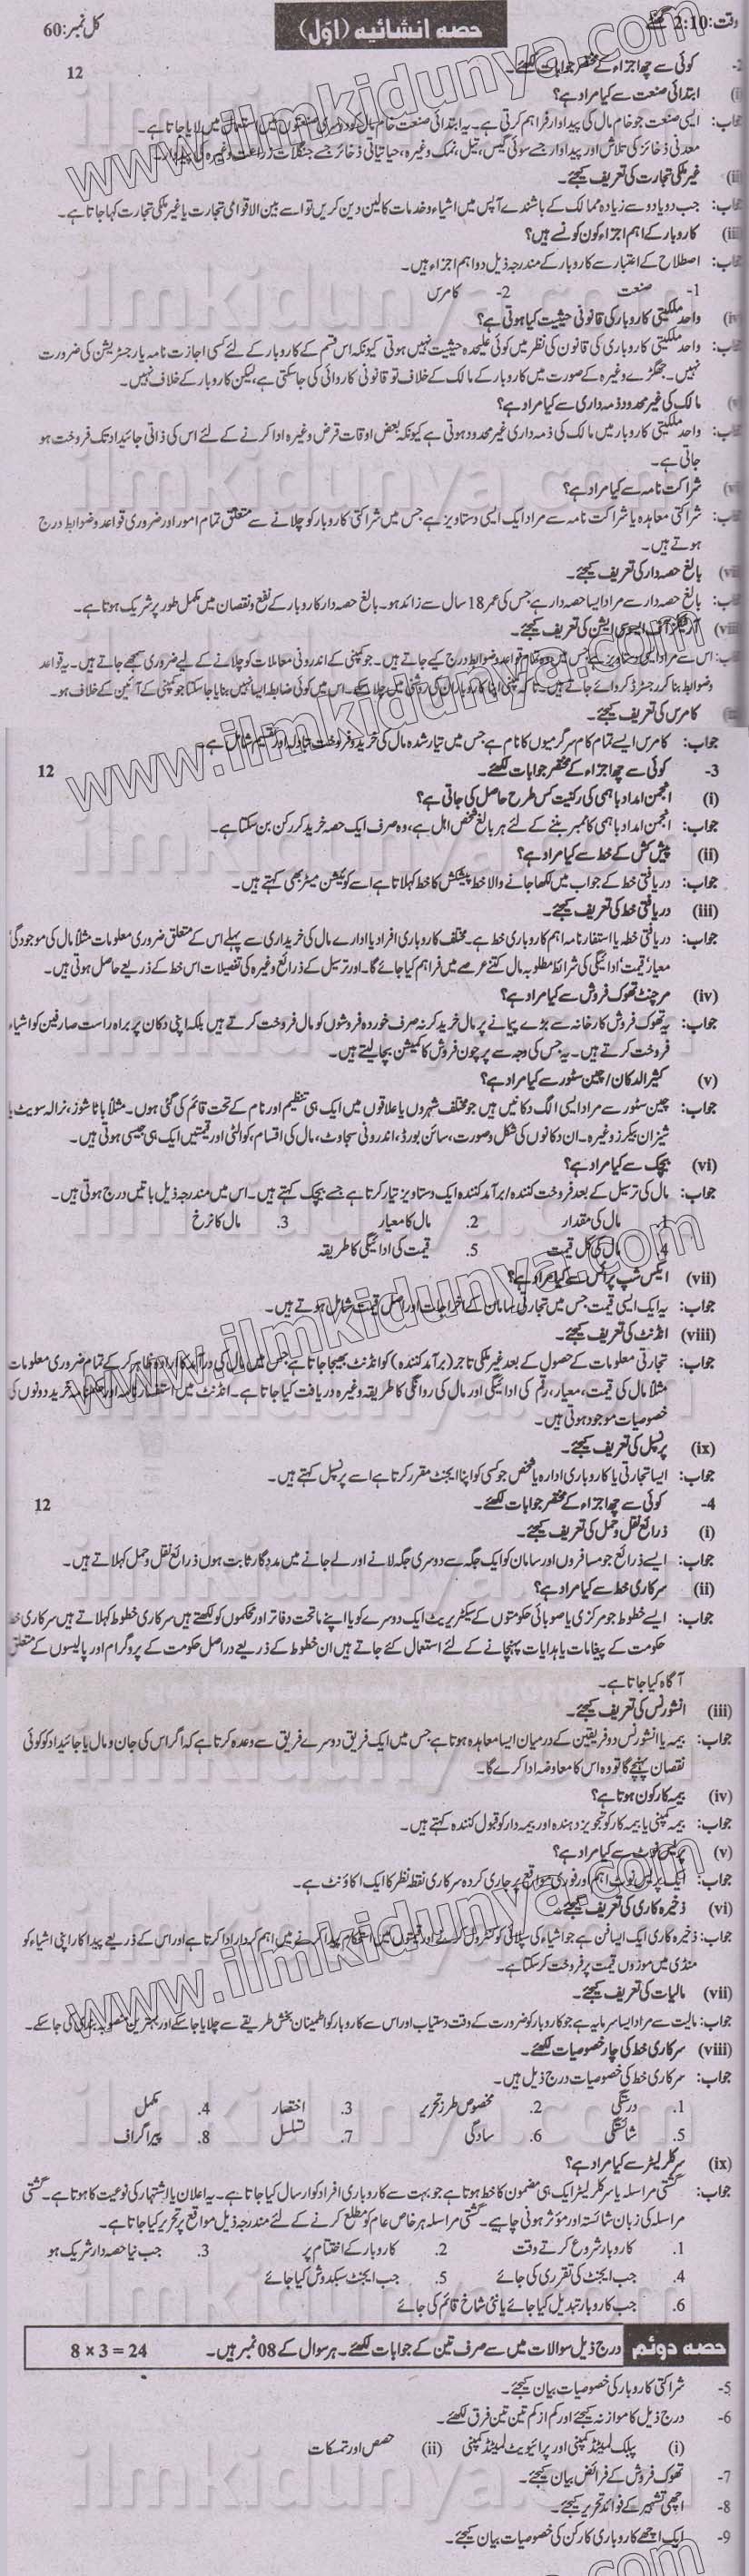 وقت: 2:10 گھنٹے
حصہ انشائیہ (اوّل)
کل نمبر: 60
2- کوئی سے چھ اجزاء کے مختصر جوابات لکھئے۔ 12
(i) ابتدائی صنعت سے کیا مراد ہے؟
جواب: ایسی صنعت جو خام مال کی پیداوار فراہم کرتی ہے۔ یہ ابتدائی صنعت خام مال کو دوسری صنعتوں میں استعمال میں لایا جاتا ہے۔
معدنی ذخائر کی تلاش اور پیداوار جسے سوئی گیس، تیل، نمک وغیرہ، حیاتیاتی ذخائر جسے جنگلات زراعت وغیرہ کی پیداوار۔
(ii) غیر ملکی تجارت کی تعریف کیجئے۔
جواب: جب دو یا دو سے زیادہ ممالک کے باشندے آپس میں اشیاء و خدمات کا لین دین کریں تو اسے بین الاقوامی تجارت یا غیر ملکی تجارت کہا جاتا ہے۔
(iii) کاروبار کے اہم اجزاء کون کونسے ہیں؟
جواب: اصطلاح کے اعتبار سے کاروبار کے مندرجہ ذیل دو اہم اجزاء ہیں۔
1- صنعت 2- کامرس
(iv) واحد ملکیتی کاروبار کی قانونی حیثیت کیا ہوتی ہے؟
جواب: واحد ملکیتی کاروباری کی قانون کی نظر میں کوئی علیحدہ حیثیت نہیں ہوتی کیونکہ اس قسم کے کاروبار کے لئے کسی اجازت نامہ یا رجسٹریشن کی ضرورت
نہیں۔ جھگڑے وغیرہ کے صورت میں کاروبار کے مالک کے خلاف تو قانونی کاروائی کی جاسکتی ہے، لیکن کاروبار کے خلاف نہیں۔
(v) مالک کی غیر محدود ذمہ داری سے کیا مراد ہے؟
جواب: واحد ملکیتی کاروبار میں مالک کی ذمہ داری غیر محدود ہوتی ہے کیونکہ بعض اوقات قرض وغیرہ ادا کرنے کے لئے اس کی ذاتی جائیداد تک فروخت ہو
جاتی ہے۔
(vi) شراکت نامہ سے کیا مراد ہے؟
جواب: شراکتی معاہدہ یا شراکت نامہ سے مراد ایک ایسی دستاویز ہے جس میں شراکتی کاروبار کو چلانے سے متعلق تمام امور اور ضروری قواعد و ضوابط درج
ہوتے ہیں۔
(vii) بالغ حصہ دار کی تعریف کیجئے۔
جواب: بالغ حصہ دار سے مراد ایسا حصہ دار ہے جس کی عمر 18 سال سے زائد ہو۔ بالغ حصہ دار کاروبار کے نفع و نقصان میں مکمل طور پر شریک ہوتا ہے۔
(viii) آرٹیکلز آف ایسوسی ایشن کی تعریف کیجئے۔
جواب: اس سے مراد ایسی دستاویز ہے جس میں وہ تمام قواعد و ضوابط درج کیے جاتے ہیں۔ جو کمپنی کے اندرونی معاملات کو چلانے کے لیے ضروری سمجھے جاتے ہیں۔ یہ قواعد
و ضوابط بنا کر رجسٹرڈ کروائے جاتے ہیں۔ تاکہ کمپنی اپنا کاروبار ان کی روشنی میں چلا سکے۔ اس میں کوئی ضابطہ ایسا نہیں بنایا جا سکتا جو کمپنی کے آئین کے خلاف ہو۔
(ix) کامرس کی تعریف کیجئے۔
جواب: کامرس ایسے تمام کام سرگرمیوں کا نام ہے جس میں تیار شدہ مال کی خرید و فروخت تبادلہ اور تقسیم شامل ہے۔
3- کوئی سے چھ اجزاء کے مختصر جوابات لکھئے۔ 12
(i) انجمن امداد باہمی کی رکنیت کس طرح حاصل کی جاتی ہے؟
جواب: انجمن امداد باہمی کا ممبر بننے کے لئے ہر بالغ شخص اہل ہے، وہ صرف ایک حصہ خرید کر رکن بن سکتا ہے۔
(ii) پیش کش کے خط سے کیا مراد ہے؟
جواب: دریافتی خط کے جواب میں لکھا جانے والا خط پیشکش کا خط کہلاتا ہے اسے کوٹیشن میٹر بھی کہتے ہیں۔
(iii) دریافتی خط کی تعریف کیجئے۔
جواب: دریافتی خط یا استفسار نامہ اہم کاروباری خط ہے۔ مختلف کاروباری افراد یا ادارے مال کی خریداری سے پہلے اس کے متعلق ضروری معلومات مثلاً مال کی موجودگی
معیار قیمت ادائیگی کی شرائط مطلوبہ مال کتنے عرصے میں فراہم کیا جائے گا۔ اور ترسیل کے ذرائع وغیرہ کی تفصیلات اس خط کے ذریعے حاصل ہوتی ہیں۔
(iv) مرچنٹ تھوک فروش سے کیا مراد ہے؟
جواب: یہ تھوک فروش کارخانہ سے بڑے پیمانے پر مال خرید کر نہ صرف خوردہ فروشوں کو مال فروخت کرتے ہیں بلکہ اپنی دکان پر براہ راست صارفین کو اشیاء
فروخت کرتے ہیں۔ یہ جس کی وجہ سے پرچون فروش کا کمیشن بچا لیتے ہیں۔
(v) کثیر الدکان / چین سٹور سے کیا مراد ہے؟
جواب: چین سٹور سے مراد ایسی الگ دکانیں ہیں جو مختلف شہروں یا علاقوں میں ایک ہی تنظیم اور نام کے تحت قائم کی گئی ہوں۔ مثلاً باٹا شوز، نرالہ سویٹ یا
شیزان بیکرز وغیرہ۔ ان دکانوں کی شکل و صورت، سائن بورڈ، اندرونی سجاوٹ، مال کی اقسام، کوالٹی اور قیمتیں ایک ہی جیسی ہوتی ہیں۔
(vi) بیجک سے کیا مراد ہے؟
جواب: مال کی ترسیل کے بعد فروخت کنندہ / برآمد کنندہ ایک دستاویز تیار کرتا ہے جسے بیجک کہتے ہیں۔ اس میں مندرجہ ذیل باتیں درج ہوتی ہیں۔
1. مال کی مقدار 2. مال کا معیار 3. مال کا نرخ
4. مال کی کل قیمت 5. قیمت کی ادائیگی کا طریقہ
(vii) ایکس شپ پرائس سے کیا مراد ہے؟
جواب: یہ ایک ایسی قیمت جس میں تجارتی سامان کے اخراجات اور اصل قیمت شامل ہوتے ہیں۔
(viii) انڈنٹ کی تعریف کیجئے۔
جواب: تجارتی معلومات کے حصول کے بعد غیر ملکی تاجر (برآمد کنندہ) کو انڈنٹ بھیجا جاتا ہے جس میں مال کی درآمد کا ارادہ ظاہر کر کے تمام ضروری معلومات
مثلاً مال کی قیمت، معیار، رقم کی ادائیگی اور مال کی روانگی کا طریقہ وغیرہ دریافت کیا جاتا ہے۔ انڈنٹ میں استفسار نامہ اور حکمنامہ خرید دونوں کی
خصوصیات موجود ہوتی ہیں۔
(ix) پرنسپل کی تعریف کیجئے۔
جواب: ایسا تجارتی یا کاروباری ادارہ یا شخص جو کسی کو اپنا ایجنٹ مقرر کرتا ہے اسے پرنسپل کہتے ہیں۔
4- کوئی سے چھ اجزاء کے مختصر جوابات لکھئے۔ 12
(i) ذرائع نقل و حمل کی تعریف کیجئے۔
جواب: ایسے ذرائع جو مسافروں اور سامان کو ایک جگہ سے دوسری جگہ لانے اور لے جانے میں مددگار ثابت ہوں ذرائع نقل و حمل کہلاتے ہیں۔
(ii) سرکاری خط سے کیا مراد ہے؟
جواب: ایسے خطوط جو مرکزی یا صوبائی حکومتوں کے سیکٹریریٹ ایک دوسرے کو یا اپنے ماتحت دفاتر اور محکموں کو لکھتے ہیں سرکاری خطوط کہلاتے ہیں سرکاری خط
حکومت کے پیغامات یا ہدایات پہنچانے کے لئے استعمال کئے جاتے ہیں ان خطوط کے ذریعے دراصل حکومت کے پروگرام اور پالیسوں کے متعلق
آگاہ کیا جاتا ہے۔
(iii) انشورنس کی تعریف کیجئے۔
جواب: بیمہ یا انشورنس دو فریقین کے درمیان ایسا معاہدہ ہوتا ہے جس میں ایک فریق دوسرے فریق سے وعدہ کرتا ہے کہ اگر اس کی جان و مال یا جائیداد کو کوئی
نقصان پہنچے گا تو وہ اس کا معاوضہ ادا کرے گا۔
(iv) بیمہ کار کون ہوتا ہے؟
جواب: بیمہ کمپنی یا بیمہ کار کو تجویز دہندہ اور بیمہ دار کو قبول کنندہ کہتے ہیں۔
(v) پریس نوٹ سے کیا مراد ہے؟
جواب: ایک پریس نوٹ اہم اور فوری مواقع پر جاری کردہ سرکاری نقطہ نظر کا ایک اکاؤنٹ ہے۔
(vi) ذخیرہ کاری کی تعریف کیجئے۔
جواب: ذخیرہ کاری ایک ایسا فن ہے جو اشیاء کی سپلائی کو کنٹرول کرنے اور قیمتوں میں استحکام پیدا کرنے میں اہم کردار ادا کرتا ہے اور اس کے ذریعے پیدا کار اپنی اشیاء کو
منڈی میں موزوں قیمت پر فروخت کر سکتا ہے۔
(vii) مالیات کی تعریف کیجئے۔
جواب: مالیت سے مراد ایسا سرمایہ ہے جو کاروبار کو ضرورت کے وقت دستیاب اور اس سے کاروبار کو اطمینان بخش طریقے سے چلایا جا سکے اور بہترین منصوبہ بندی کی جا سکے۔
(viii) سرکاری خط کی چار خصوصیات لکھئے۔
جواب: سرکاری خط کی خصوصیات درج ذیل ہیں۔
1. درستگی 2. مخصوص طرز تحریر 3. اختصار 4. مکمل
5. شائستگی 6. سادگی 7. تسلسل 8. پیراگراف
(ix) سرکلر لیٹر سے کیا مراد ہے؟
جواب: گشتی مراسلہ یا سرکلر لیٹر ایک ہی مضمون کا خط ہوتا ہے جو بہت سے کاروباری افراد کو ارسال کیا جاتا ہے۔ یہ اعلان یا اشتہار کی نوعیت کا ہوتا ہے۔ گشتی
مراسلہ کی زبان شائستہ اور مؤثر ہونی چاہیے۔ گشتی مراسلہ ہر خاص عام کو مطلع کرنے کے لئے مندرجہ ذیل مواقع پر تحریر کیا جاتا ہے۔
1. کاروبار شروع کرتے وقت 2. کاروبار کے اختتام پر 3. جب نیا حصہ دار شریک ہو
4. جب ایجنٹ کی تقرری کی جائے 5. جب ایجنٹ سبکدوش کیا جائے
6. جب کاروبار تبدیل کیا جائے یا نئی شاخ قائم کی جائے
حصہ دوئم درج ذیل سوالات میں سے صرف تین کے جوابات لکھئے۔ ہر سوال کے 08 نمبر ہیں۔ 8 × 3 = 24
5- شراکتی کاروبار کی خصوصیات بیان کیجئے۔
6- درج ذیل کا موازنہ کیجئے اور کم از کم تین تین فرق لکھئے۔
(i) پبلک لمیٹڈ کمپنی اور پرائیویٹ لمیٹڈ کمپنی (ii) حصص اور تمسکات
7- تھوک فروش کے فرائض بیان کیجئے۔
8- اچھی تشہیر کے فوائد تحریر کیجئے۔
9- ایک اچھے کاروباری کارکن کی خصوصیات بیان کیجئے۔
www.ilmkidunya.com